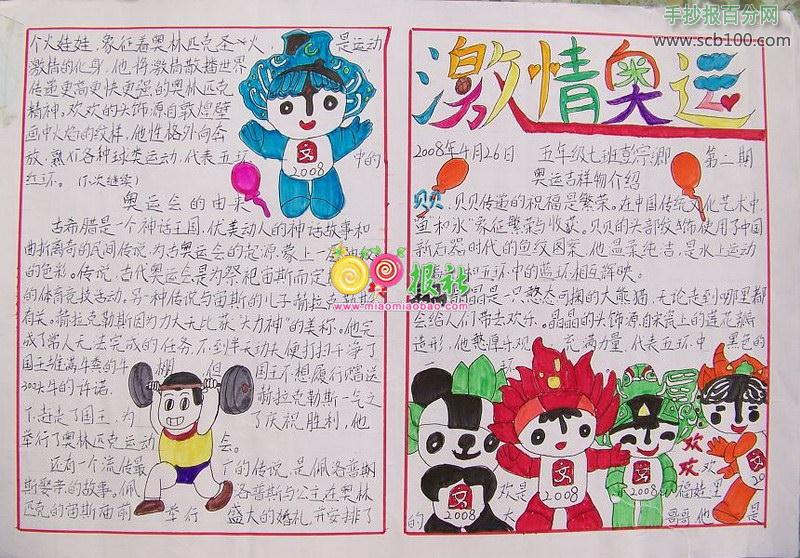 手抄报百分网
www.scb100.com
激情奥运
2008年4月26日 五年级七班 第二期
奥运吉祥物介绍
贝贝,贝贝传递的祝福是繁荣。在中国传统文化艺术中,
"鱼和水"象征繁荣与收获。贝贝的头部纹饰使用了中国
新石器时代的鱼纹图案,他温柔纯洁,是水上运动
和五环中的蓝环相互辉映。
晶晶是一只憨态可掬的大熊猫,无论走到哪里都
会给人们带去欢乐。晶晶的头饰源自宋瓷上的莲花瓣
造形,他憨厚乐观 充满力量,代表五环中 黑色的
欢欢 欢
欢是 福娃里
的 大 哥哥,他 是
2008
2008
2008
个火娃娃,象征着奥林匹克圣火, 是运动
激情的化身,他将激情散播世界,
传递更高更快更强的奥林匹克
精神。欢欢的头饰源自敦煌壁
画中火焰的纹样,他性格外向奔
放,熟行各种球类运动,代表五环 中的
红环。(下次继续)
2008
奥运会的由来
古希腊是一个神话王国,优美动人的神话故事和
曲折离奇的民间传说,为古奥运会的起源蒙上一
的色彩。传说,古代奥运会是为祭祀宙斯而定
的体育竞技活动,另一种传说与宙斯的儿子赫拉克勒斯
有关。赫拉克勒斯因为力大无比获"大力神"的美称。他完
成了常人无法完成的任务,不到半天功夫便打扫干净了
国王堆满牛粪的牛 棚, 但 国王不想履行赠送
300头牛的许诺, 赫拉克勒斯一气之
下赶走了国王,为 了庆祝胜利,他
举行了奥林匹克运动 会。
还有一个流传最 广的传说,是佩洛普斯
娶亲的故事。佩 洛普斯与公主在奥林
匹克的宙斯庙前 举行 盛大的婚礼,并安排了
报社
www.miaomiaobao.com